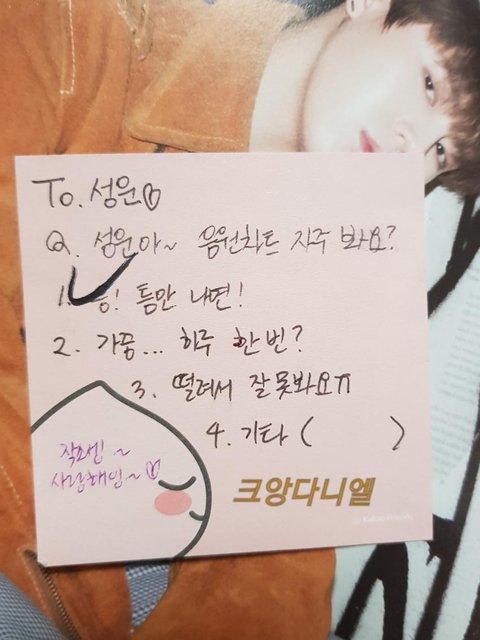 To. 성운♡
Q. 성운아~ 음원차트 자주 봐요?
1. 응! 틈만 나면!
2. 가끔... 하루 한 번?
3. 떨려서 잘 못봐요ㅠ
4. 기타 (          )
작은센~
사랑해임~♡
크앙다니엘
© Kakao Friends